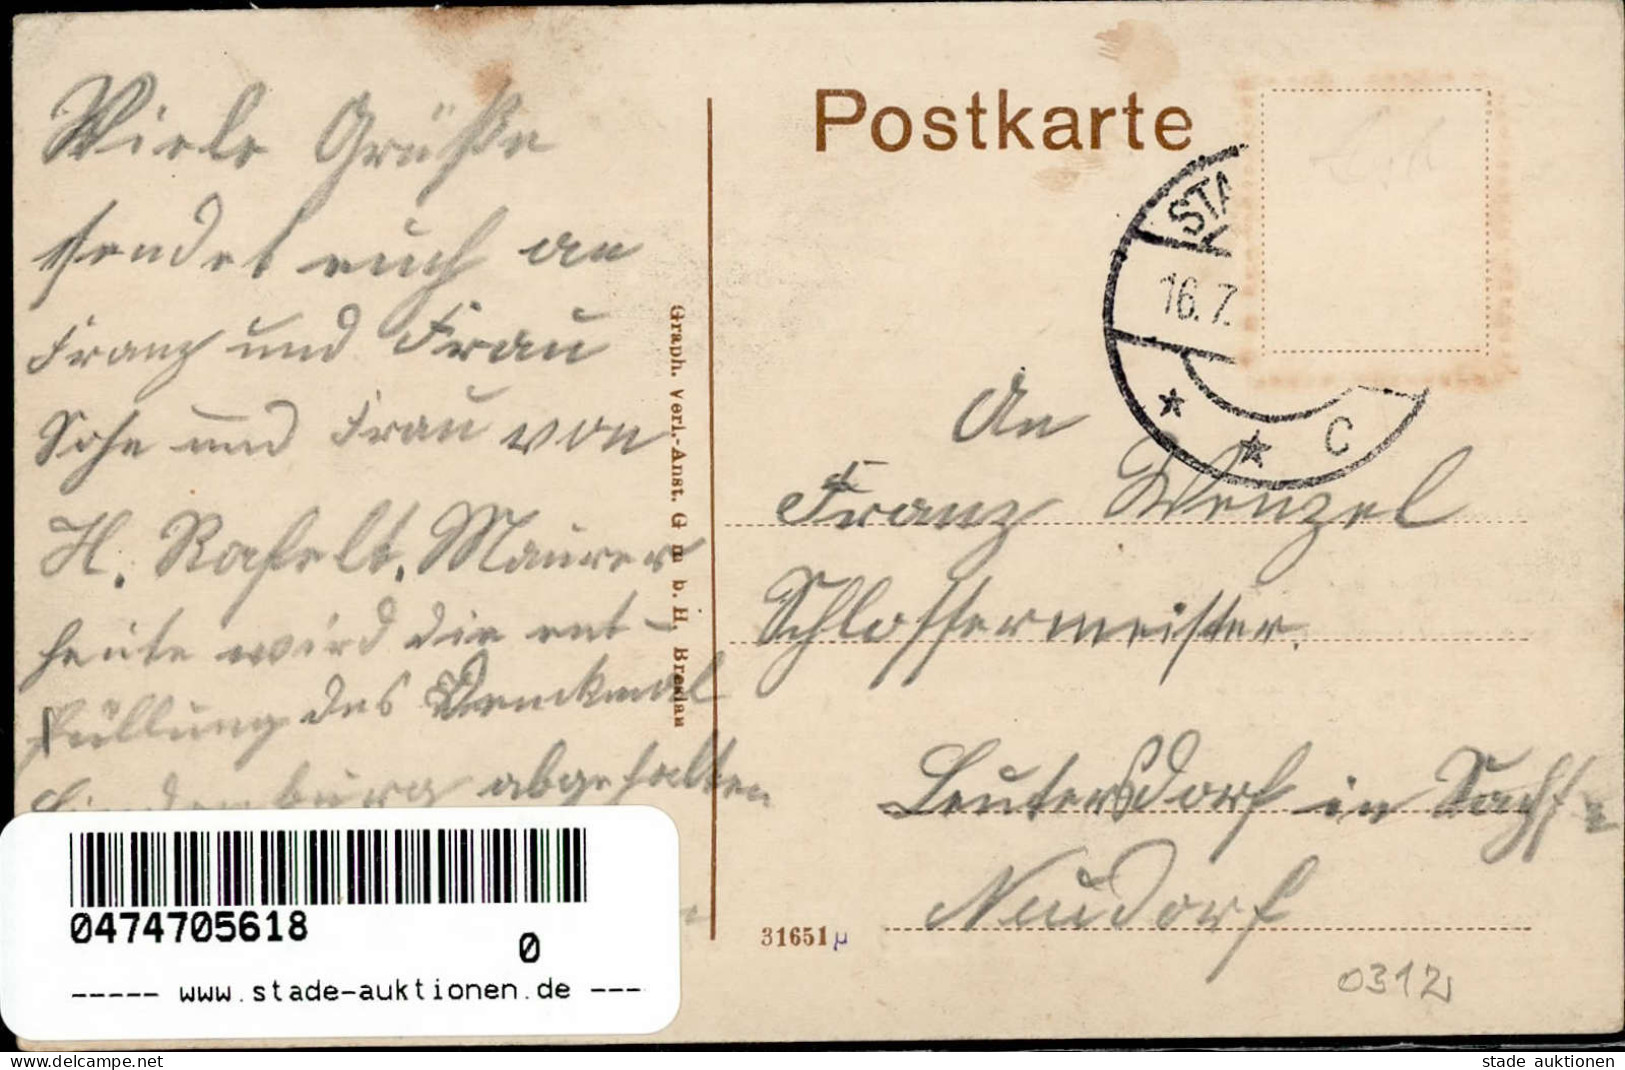 Viele Grüße
sendet euch an
Franz und Frau
Sohn und Frau von
H. Rafelt. Maurer
heute wird die ent-
hüllung des Denkmal
abgehalten
Graph. Verl.-Anst. G m b. H. Breslau
Postkarte
STA
16.7.
* * C
An
Franz Wenzel
Schlossermeister.
Leutersdorf in Sachse
Neudorf
31651 µ
0312
0474705618
0
----- www.stade-auktionen.de ---
www.delcampe.net
stade auktionen